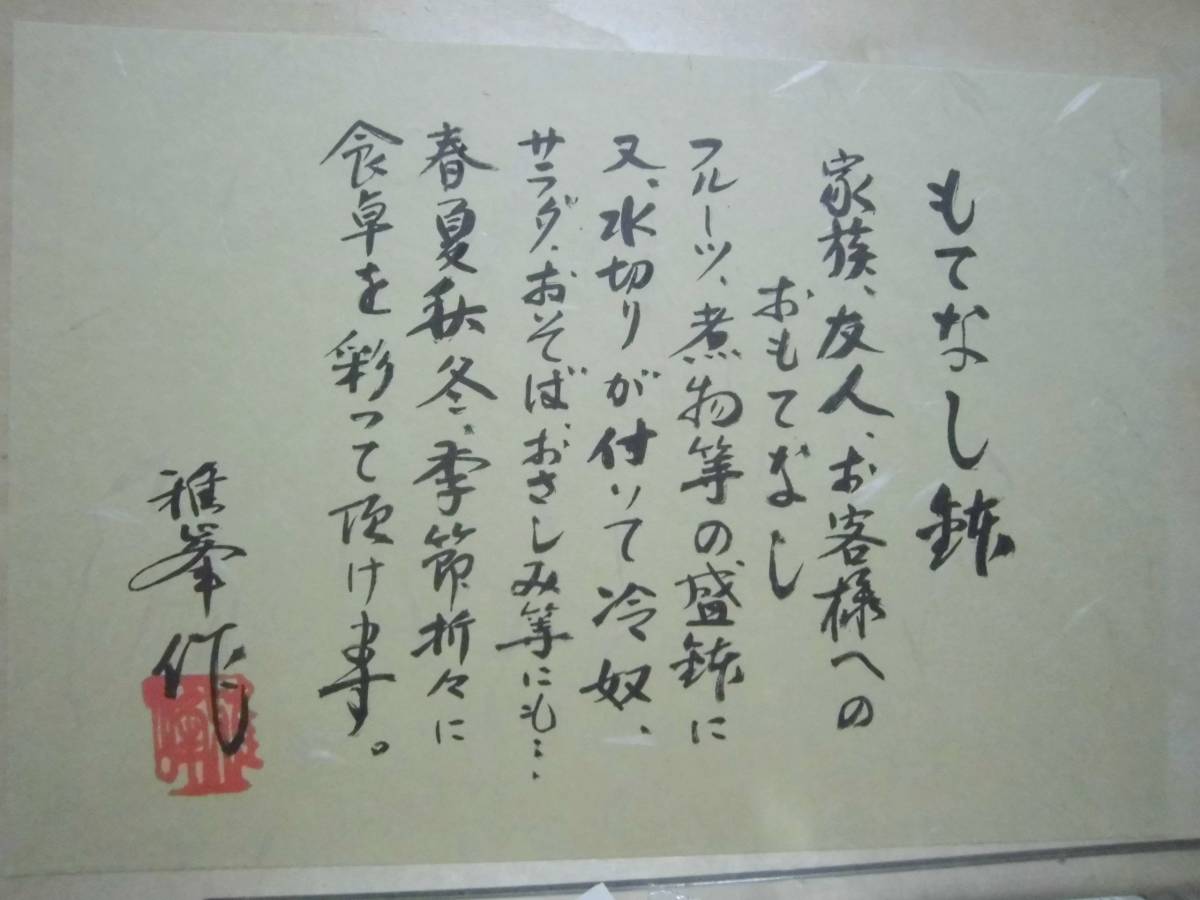 もてなし鉢
家族、友人、お客様への
おもてなし
フルーツ、煮物等の盛鉢に
又、水切りが付いて冷奴、
サラダ、おそば、おさしみ等にも…
春夏秋冬、季節折々に
食卓を彩って頂けます。
雅峯作